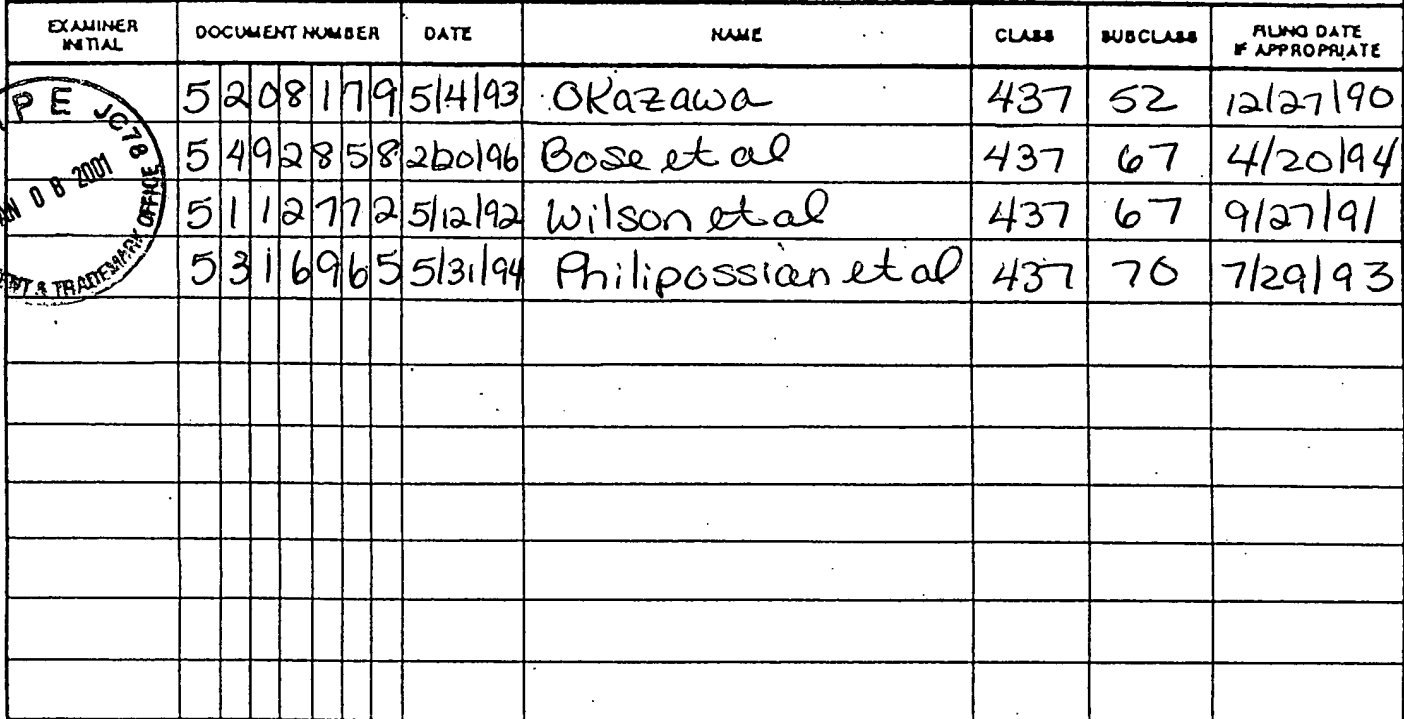 EXAMINER INITIAL DOCUMENT NUMBER DATE NAME CLASS SUBCLASS FILING DATE IF APPROPRIATE
5208179 5/4/93 Okazawa 437 52 12/27/90
5492858 2/20/96 Bose et al 437 67 4/20/94
5112772 5/12/92 Wilson et al 437 67 9/27/91
5316965 5/31/94 Philipossian et al 437 70 7/29/93
P E JC78
0 8 2001
& TRADEMARK OFFICE